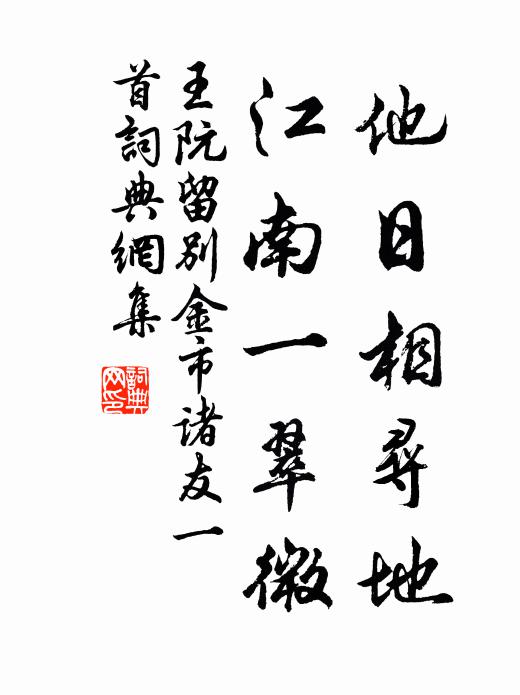 他日相尋地
江南一翠微
王阮留別金市诸友一
首詞典網集
詞典
网印